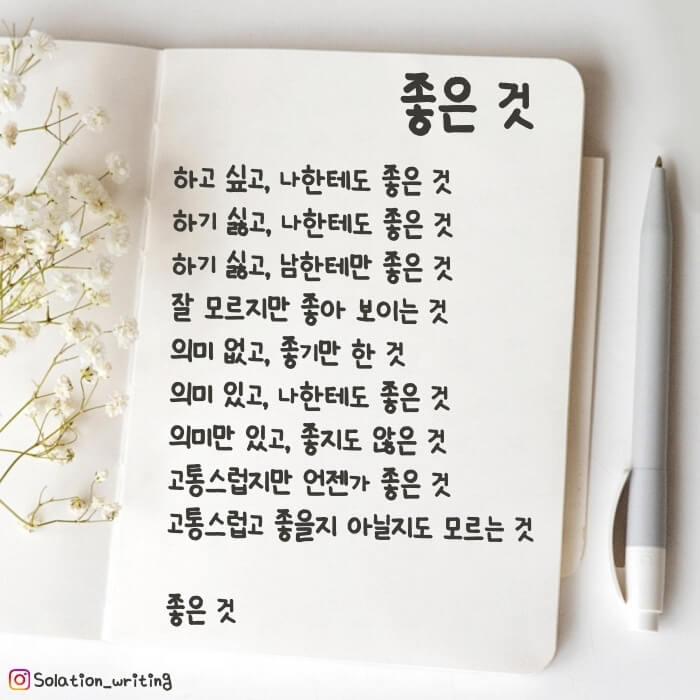 좋은 것
하고 싶고, 나한테도 좋은 것
하기 싫고, 나한테도 좋은 것
하기 싫고, 남한테만 좋은 것
잘 모르지만 좋아 보이는 것
의미 없고, 좋기만 한 것
의미 있고, 나한테도 좋은 것
의미만 있고, 좋지도 않은 것
고통스럽지만 언젠가 좋은 것
고통스럽고 좋을지 아닐지도 모르는 것
좋은 것
Solation_writing